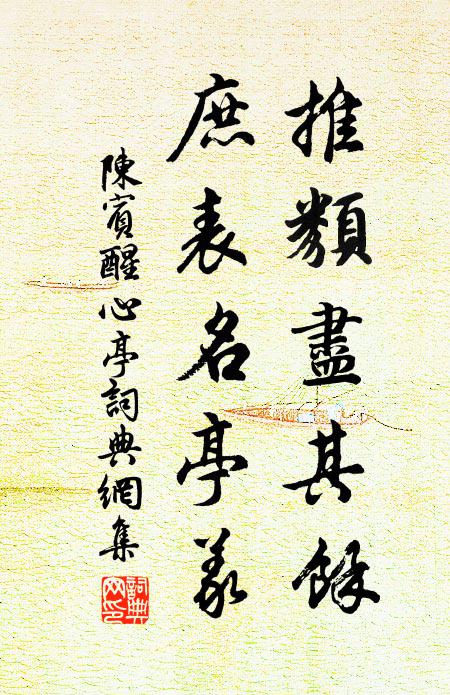 推類盡其餘
庶表名亭義
陳賓醒心亭詞典網集
詞典
网印